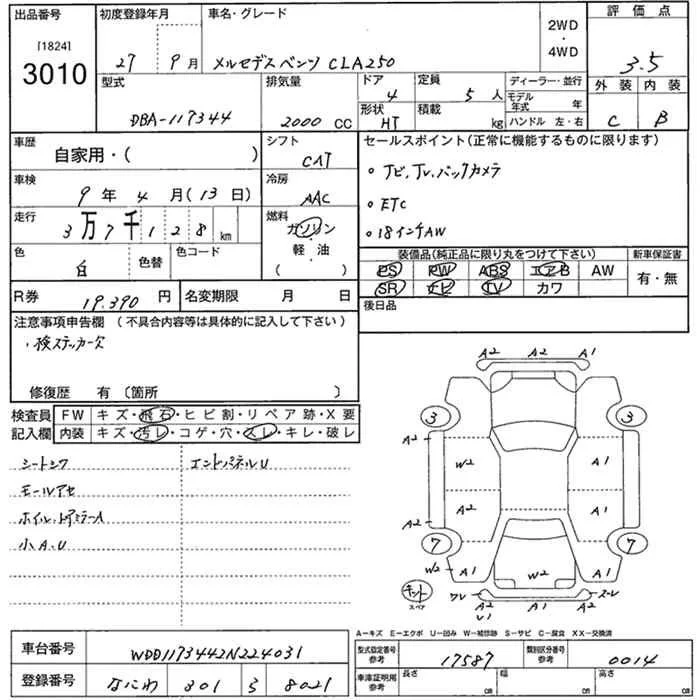 出品番号 [1824] 3010
初度登録年月 27 9月
車名・グレード メルセデスベンツ CLA250
2WD・4WD
評価点 3.5
外装 C 内装 B
型式 DBA-117344
排気量 2000 CC
ドア 4 定員 5人
形状 HT 積載 kg
ディーラー・並行
モデル年式 年
ハンドル 左・右
車歴 自家用・( )
シフト CAT
車検 9年4月(13日)
冷房 AAC
走行 3万7千128km
燃料 ガソリン・軽・油 ( )
色 白 色替 色コード
セールスポイント(正常に機能するものに限ります)
・ナビ、TV、バックカメラ
・ETC
・18インチAW
装備品(純正品に限り丸をつけて下さい) 新車保証書
PS PW ABS エアB AW 有・無
SR ナビ TV カワ
R券 19,390円 名変期限 月 日
後日品
注意事項申告欄 (不具合内容等は具体的に記入して下さい)
・検ステッカー欠
修復歴 有 〔箇所 〕
検査員 FW キズ・飛石・ヒビ割・リペア跡・X要
記入欄 内装 キズ・汚レ・コゲ・穴・スレ・キレ・破レ
シートシワ エンドパネルU
モールアセ
ホイル・ドアミラーA
小A.U
A2 A2 A1
3 3
A2
W2 A1
A2 A1
A2
7 7
W2 A1 W2 A1
キット スペア
ワレ A2 A1 A1 スレ
U1
A-キズ E-エクボ U-凹み W-補修跡 S-サビ C-腐食 XX-交換済
車台番号 WDD1173442N224031
型式指定番号 参考 17587 類別区分番号 参考 0014
登録番号 なにわ 301 す 8021
車庫証明用 参考 長さ cm 幅 cm 高さ cm